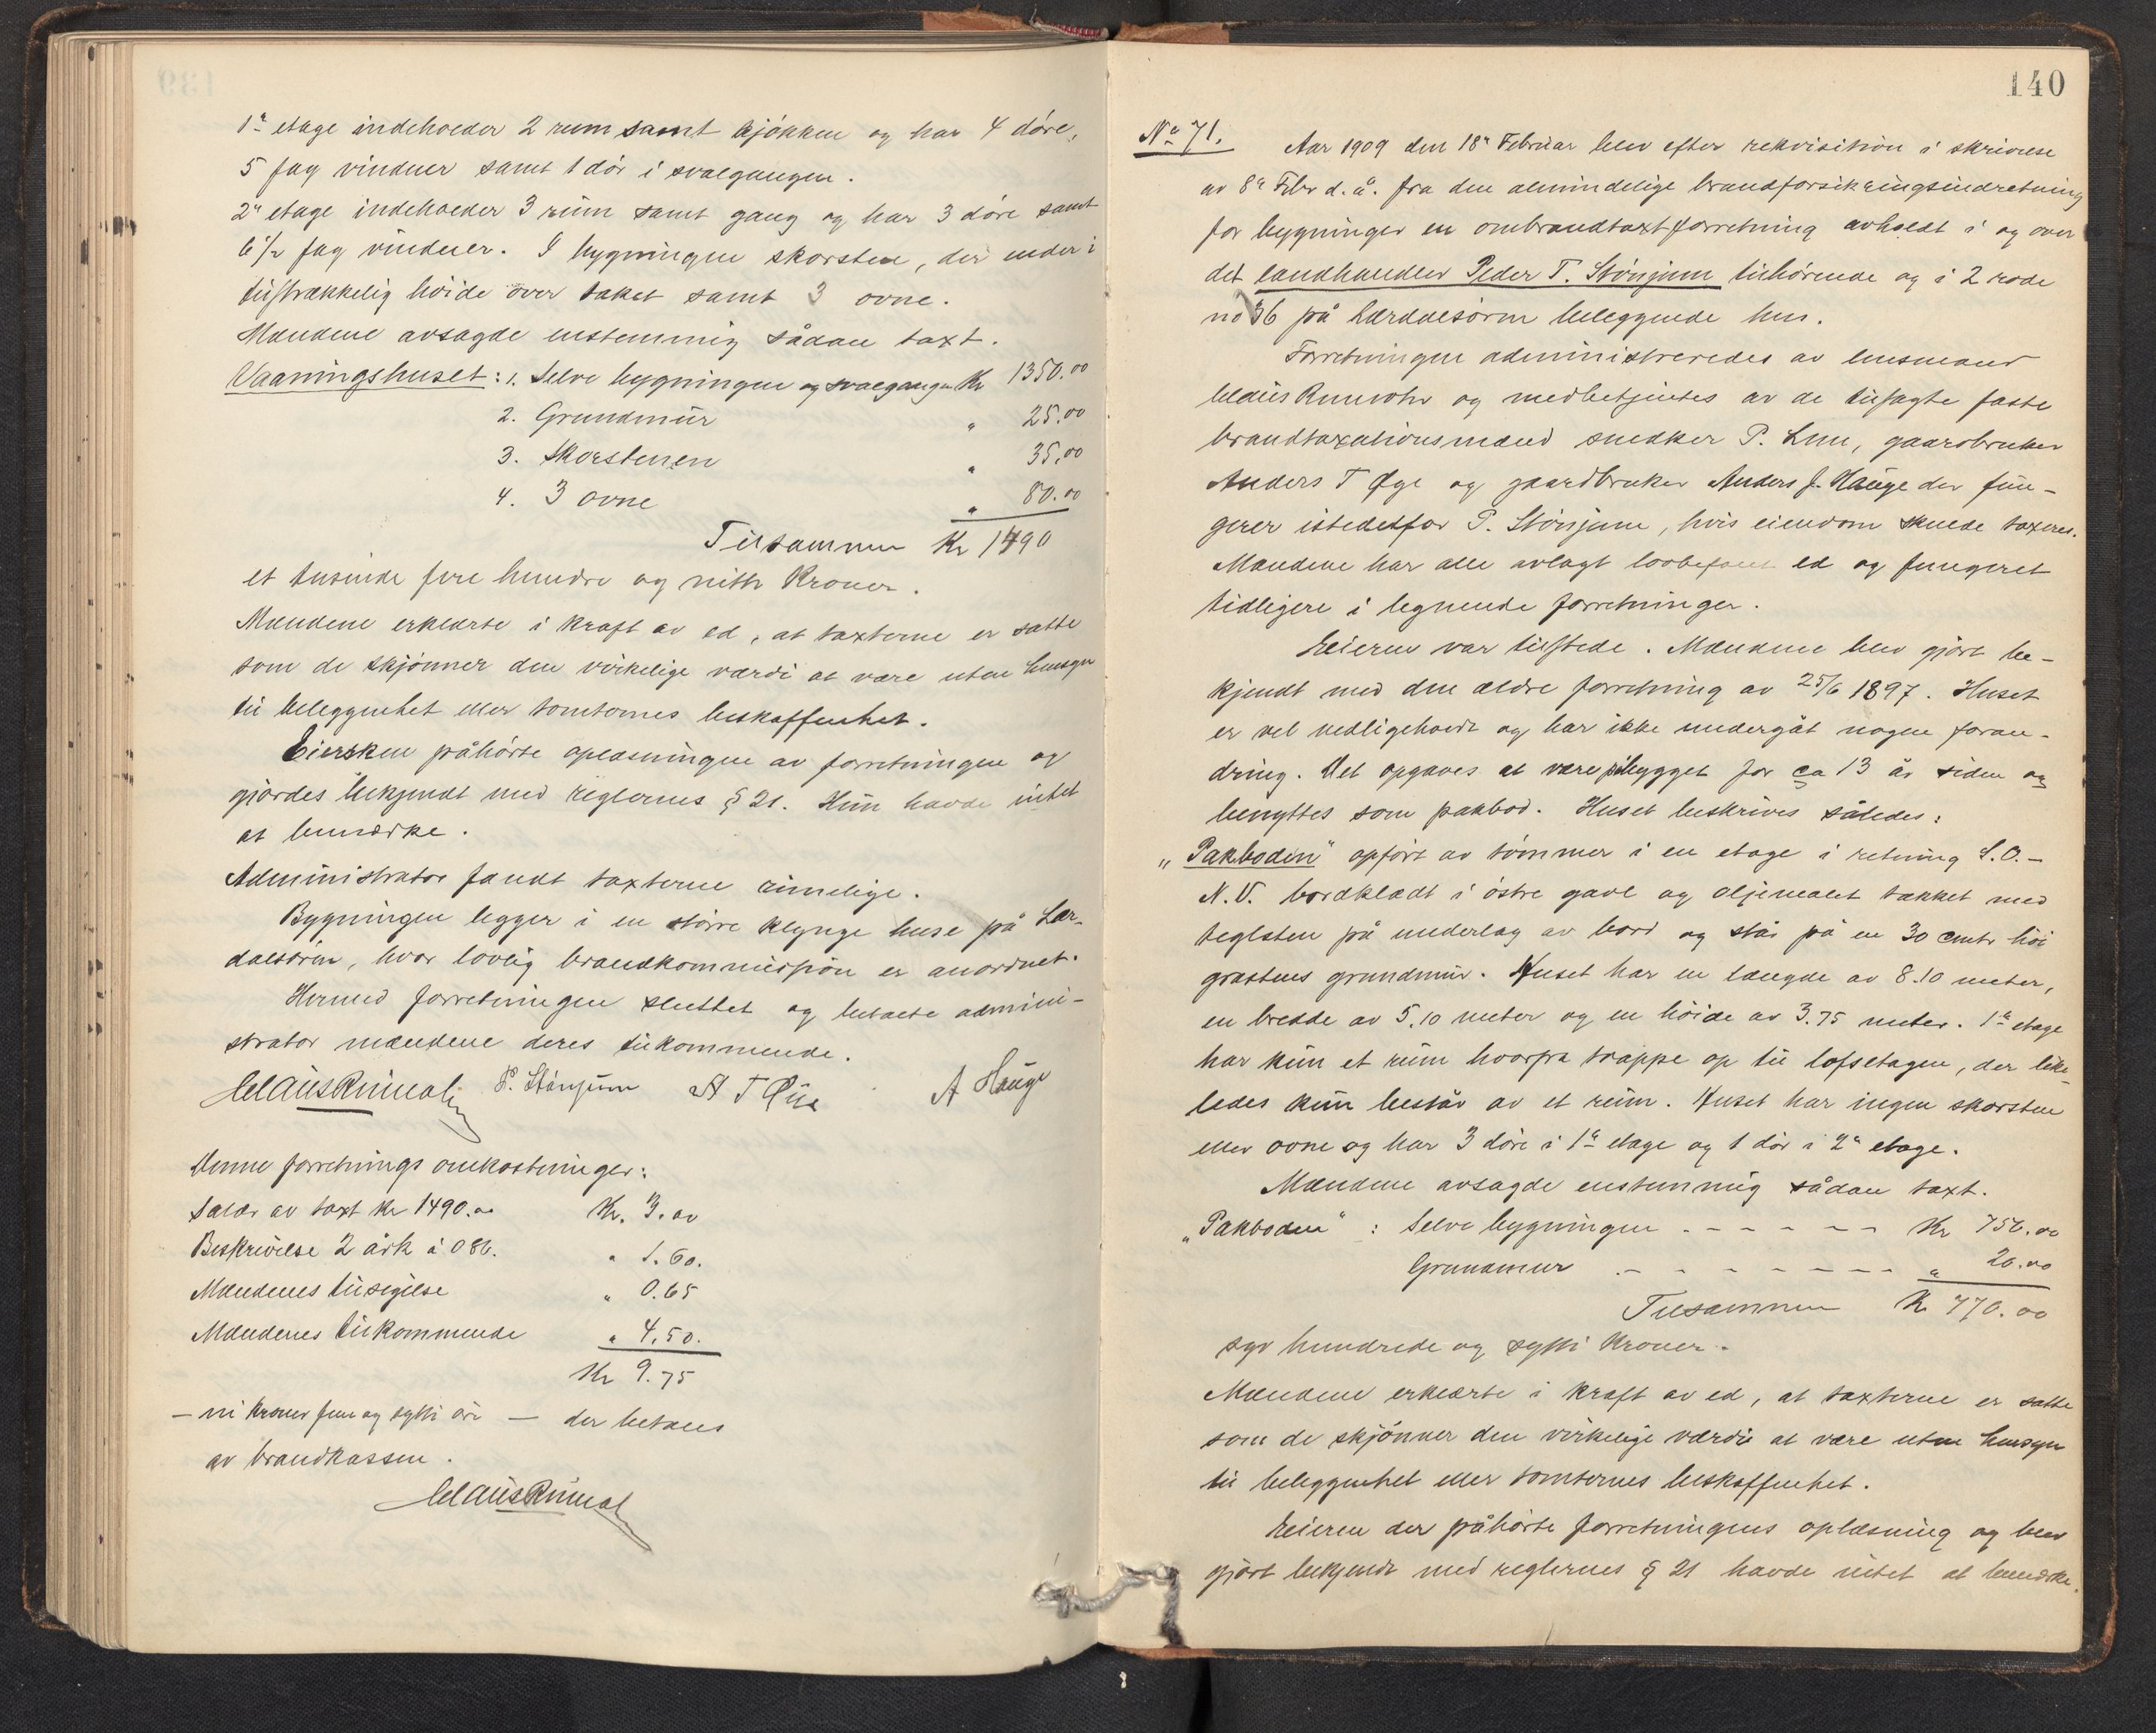 1ᵃ etage indeholder 2 rum samt kjøkken og har 4 døre,
5 fag vinduer samt 1 dør i svalgangen.
2ᵃ etage indeholder 3 rum samt gang og har 3 døre samt
6 1/2 fag vinduer. I bygningen skorsten, der ender i
tilstrækkelig høide over taket samt 3 ovne.
Mændene avsagde enstemmig sådan taxt.
Vaaningshuset: 1. Selve bygningen og svalgangen Kr 1350.00
2. Grundmur " 25.00
3. Skorstenen " 35.00
4. 3 ovne " 80.00
Tilsammen Kr 1490
et tusinde fire hundre og nitti Kroner.
Mændene erklærte i kraft av ed, at taxterne er satte
som de skjønner den virkelige værdi at være uten hensyn
til beleggenhet eller tomternes beskaffenhet.
Eiersken påhørte oplæsningen av forretningen og
gjørdes bekjendt med reglernes § 21. Hun havde intet
at bemærke.
Administrator fandt taxterne rimelige.
Bygningen legger i en større klynge huse på Lær-
dalsøren, hvor lovlig brandkommission er anordnet.
Hermed forretningen sluttet og betalte admini-
strator mændene deres tilkommende.
P. Stönjum A T Øie A Hauge
Denne forretnings omkostninger:
Salær av taxt Kr 1490.00 Kr. 3.00
Beskrivelse 2 ark á 080. " 1.60.
Mændenes tilsigelse " 0.65
Mændenes tilkommende " 4.50.
Kr 9.75
— ni kroner fem og sytti øre — der betales
av brandkassen.
140
No 71. Aar 1909 den 18ᵈ Februar blev efter rekvisition i skrivelse
av 8ᵈ Febr d. å. fra den almindelige brandforsikringsindretning
for bygninger en ombrandtaxtforretning avholdt i og over
det landhandler Peder T. Stönjum tilhørende og i 2 rode
no 36 på Lærdalsøren beleggende hus.
Forretningen administreredes av lensmand
og medbetjentes av de tilsagte faste
brandtaxationsmænd snedker P. Lem, gaardbruker
Anders T Øye og gaardbruker Anders J. Hauge der fun-
gerer istedetfor P. Stönjum, hvis eiendom skulde taxeres.
Mændene har alle avlagt lovbefalet ed og fungeret
tidligere i lignende forretninger.
Eieren var tilstede. Mændene blev gjort be-
kjendt med den ældre forretning av 25/6 1897. Huset
er vel vedligeholdt og har ikke undergåt nogen foran-
dring. Det opgaves at være påbygget for ca 13 år siden og
benyttes som pakbod. Huset beskrives således:
"Pakboden" opført av tømmer i en etage i retning S.O.—
N.V. bordklædt i østre gavl og oljemalet takket med
teglsten på underlag av bord og står på en 30 cmtr høi
gråstens grundmur. Huset har en længde av 8.10 meter,
en bredde av 5.10 meter og en høide av 3.75 meter. 1ᵃ etage
har kun et rum hvorfra trappe op til loftsetagen, der like-
ledes kun består av et rum. Huset har ingen skorsten
eller ovne og har 3 døre i 1ᵃ etage og 1 dør i 2ᵃ etage.
Mændene avsagde enstemmig sådan taxt.
"Pakboden" : Selve bygningen - - - - - - Kr 750.00
Grundmur - - - - - - - - " 20.00
Tilsammen Kr 770.00
syv hundrede og sytti Kroner.
Mændene erklærte i kraft av ed, at taxterne er satte
som de skjønner den virkelige værdi at være uten hensyn
til beleggenhet eller tomternes beskaffenhet.
Eieren der påhørte forretningens oplæsning og blev
gjort bekjendt med reglernes § 21 havde intet at bemærke.